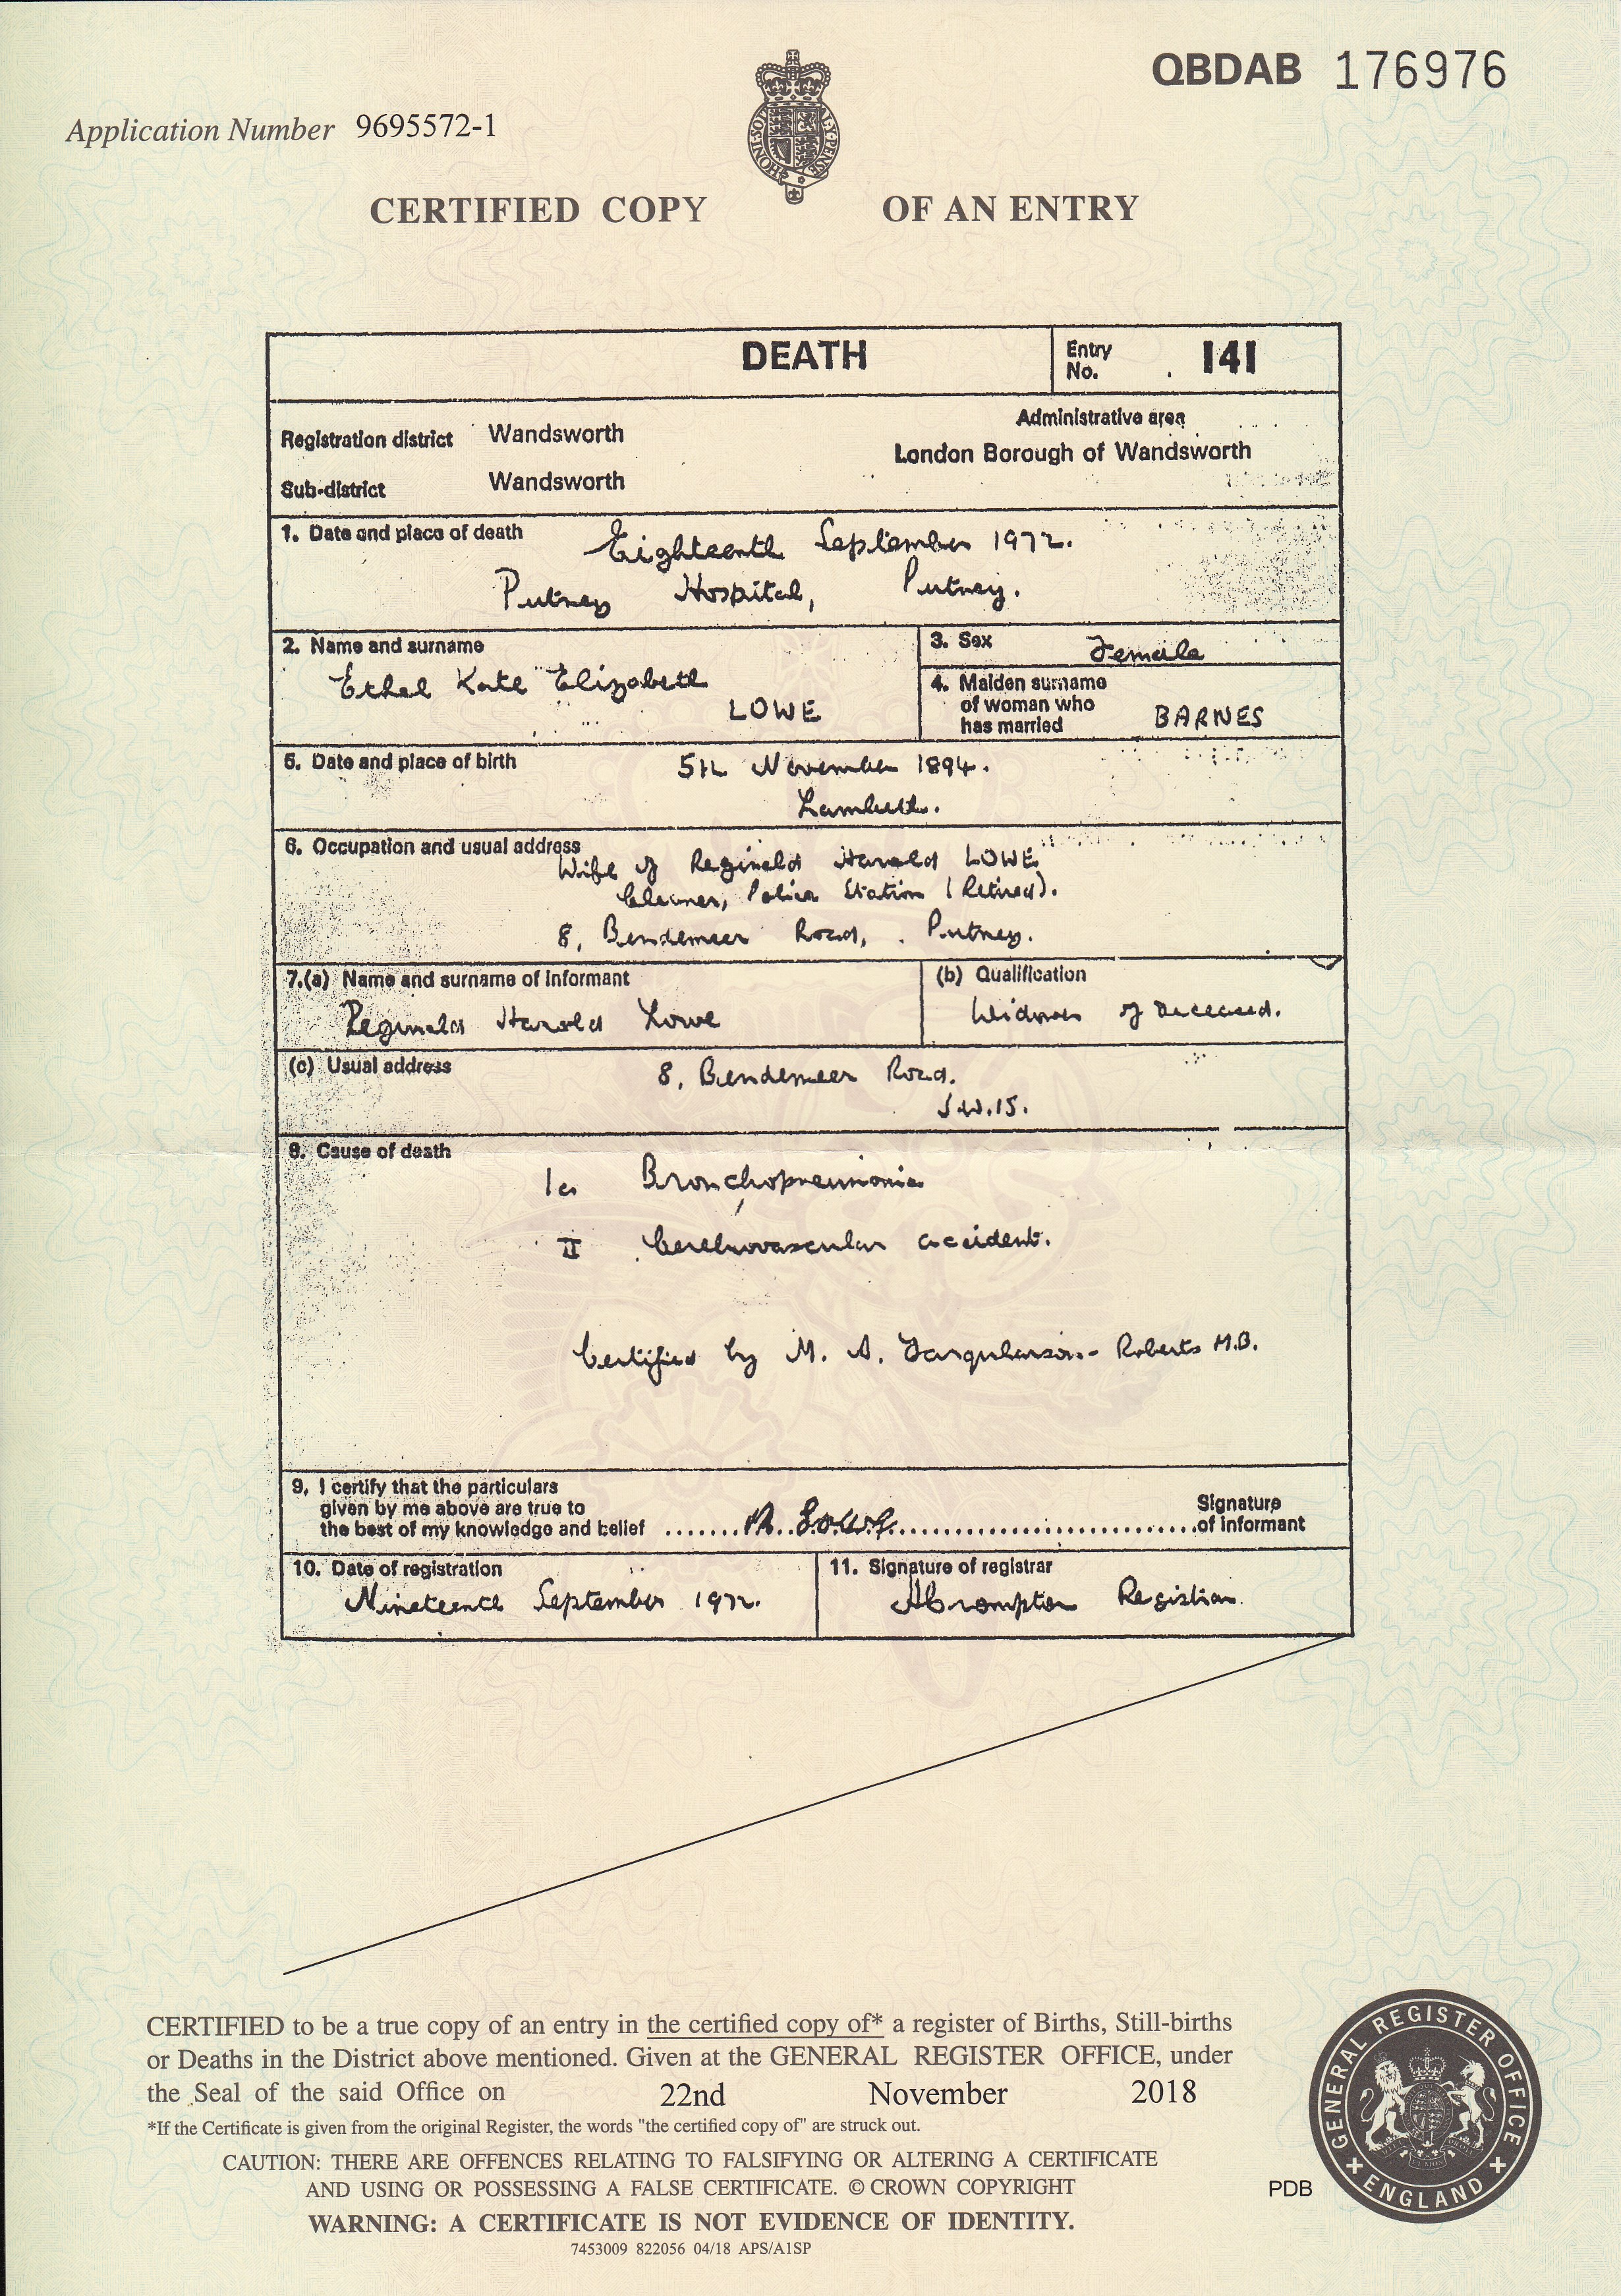 QBDAB 176976
Application Number 9695572-1
CERTIFIED COPY OF AN ENTRY
DEATH
Entry No. 141
Registration district Wandsworth
Administrative area
London Borough of Wandsworth
Sub-district Wandsworth
1. Date and place of death Eighteenth September 1972.
Putney Hospital, Putney.
2. Name and surname
Ethel Kate Elizabeth
LOWE
3. Sex Female
4. Maiden surname
of woman who
has married BARNES
5. Date and place of birth 5th November 1894.
Lambeth.
6. Occupation and usual address
Wife of Reginald Harold LOWE
Cleaner, Police Station (Retired).
8, Bendemeer Road, Putney.
7.(a) Name and surname of informant
Reginald Harold Lowe
(b) Qualification
Widower of deceased.
(c) Usual address 8, Bendemeer Road.
S.W.15.
8. Cause of death
Ia Bronchopneumonia
II Cerebrovascular accident.
Certified by M. A. Farquharson-Roberts M.B.
9. I certify that the particulars
given by me above are true to
the best of my knowledge and belief R. Lowe Signature
of informant
10. Date of registration
Nineteenth September 1972.
11. Signature of registrar
Brompton Registrar.
CERTIFIED to be a true copy of an entry in the certified copy of* a register of Births, Still-births
or Deaths in the District above mentioned. Given at the GENERAL REGISTER OFFICE, under
the Seal of the said Office on 22nd November 2018
*If the Certificate is given from the original Register, the words "the certified copy of" are struck out.
CAUTION: THERE ARE OFFENCES RELATING TO FALSIFYING OR ALTERING A CERTIFICATE
AND USING OR POSSESSING A FALSE CERTIFICATE. © CROWN COPYRIGHT
WARNING: A CERTIFICATE IS NOT EVIDENCE OF IDENTITY.
7453009 822056 04/18 APS/A1SP
PDB
GENERAL REGISTER OFFICE
ENGLAND